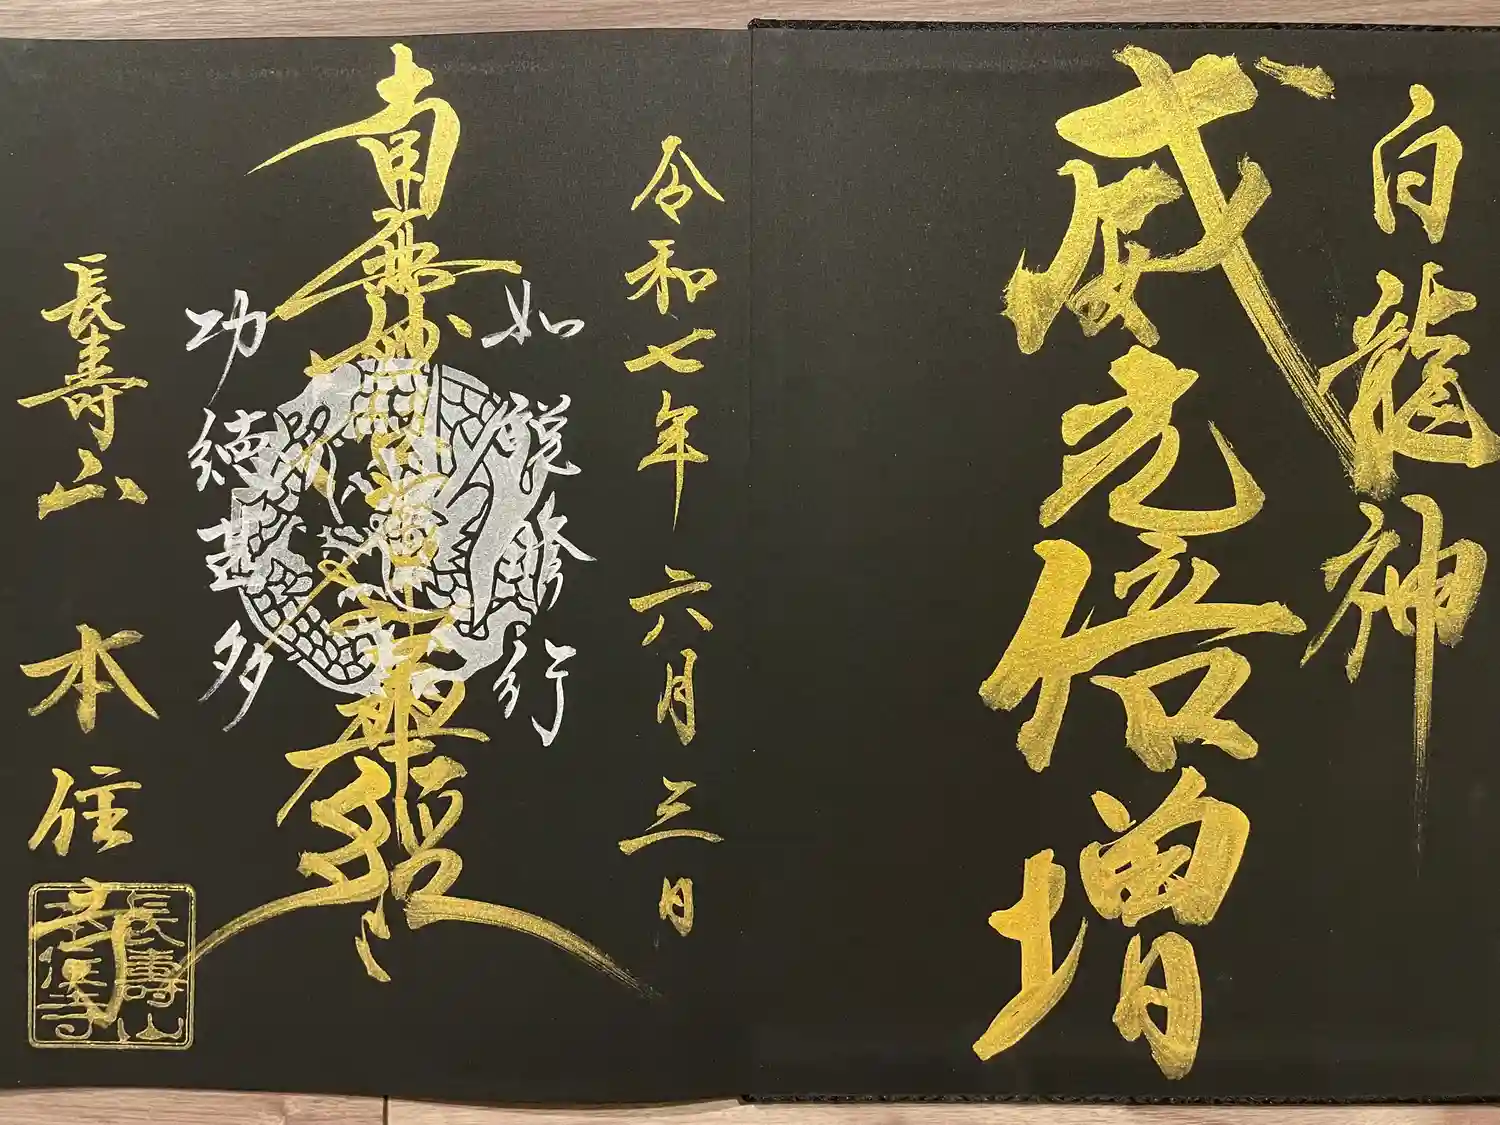 白龍神
威光倍増
令和七年 六月三日
南無妙法蓮華経
如説修行
功徳甚多
長壽山
本住寺
長壽山
本住寺